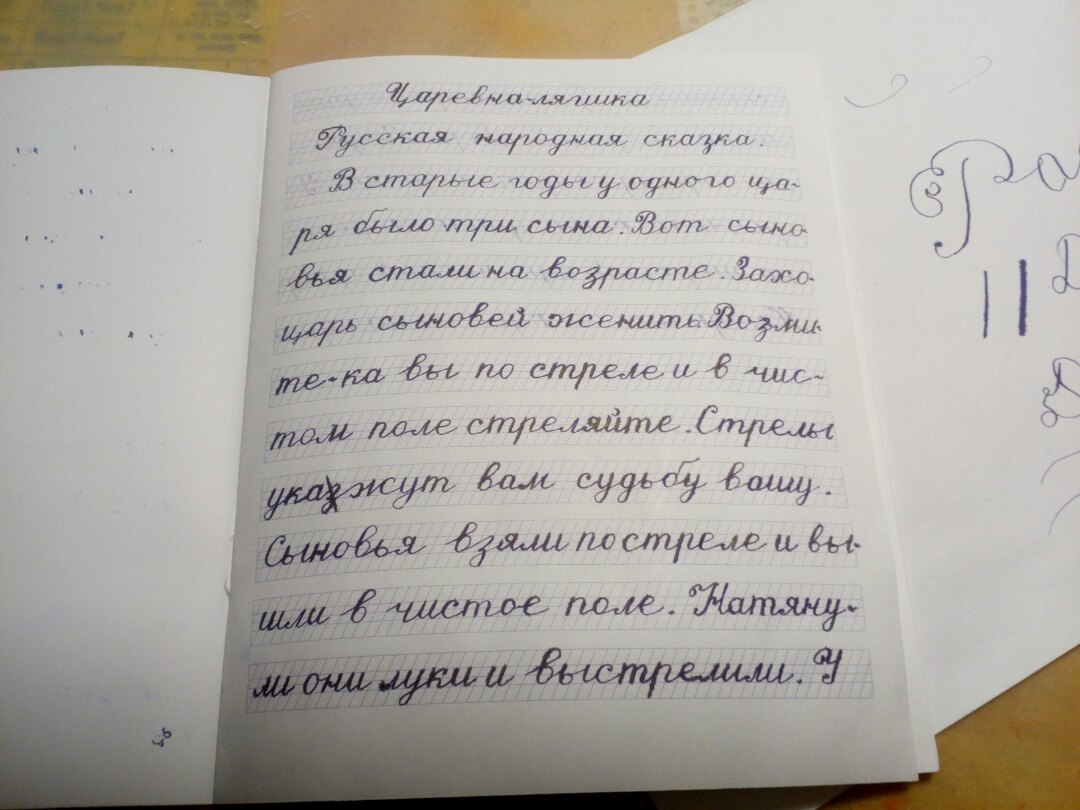 Царевна-лягшка
Русская народная сказка.
В старые годы у одного ца-
ря было три сына. Вот сыно-
вья стали на возрасте. Захо-
царь сыновей женить. Возьми-
те-ка вы по стреле и в чис-
том поле стреляйте. Стрелы
укажут вам судьбу вашу.
Сыновья взяли по стреле и вы-
шли в чистое поле. Натяну-
ли они луки и выстрелили. У
Ра